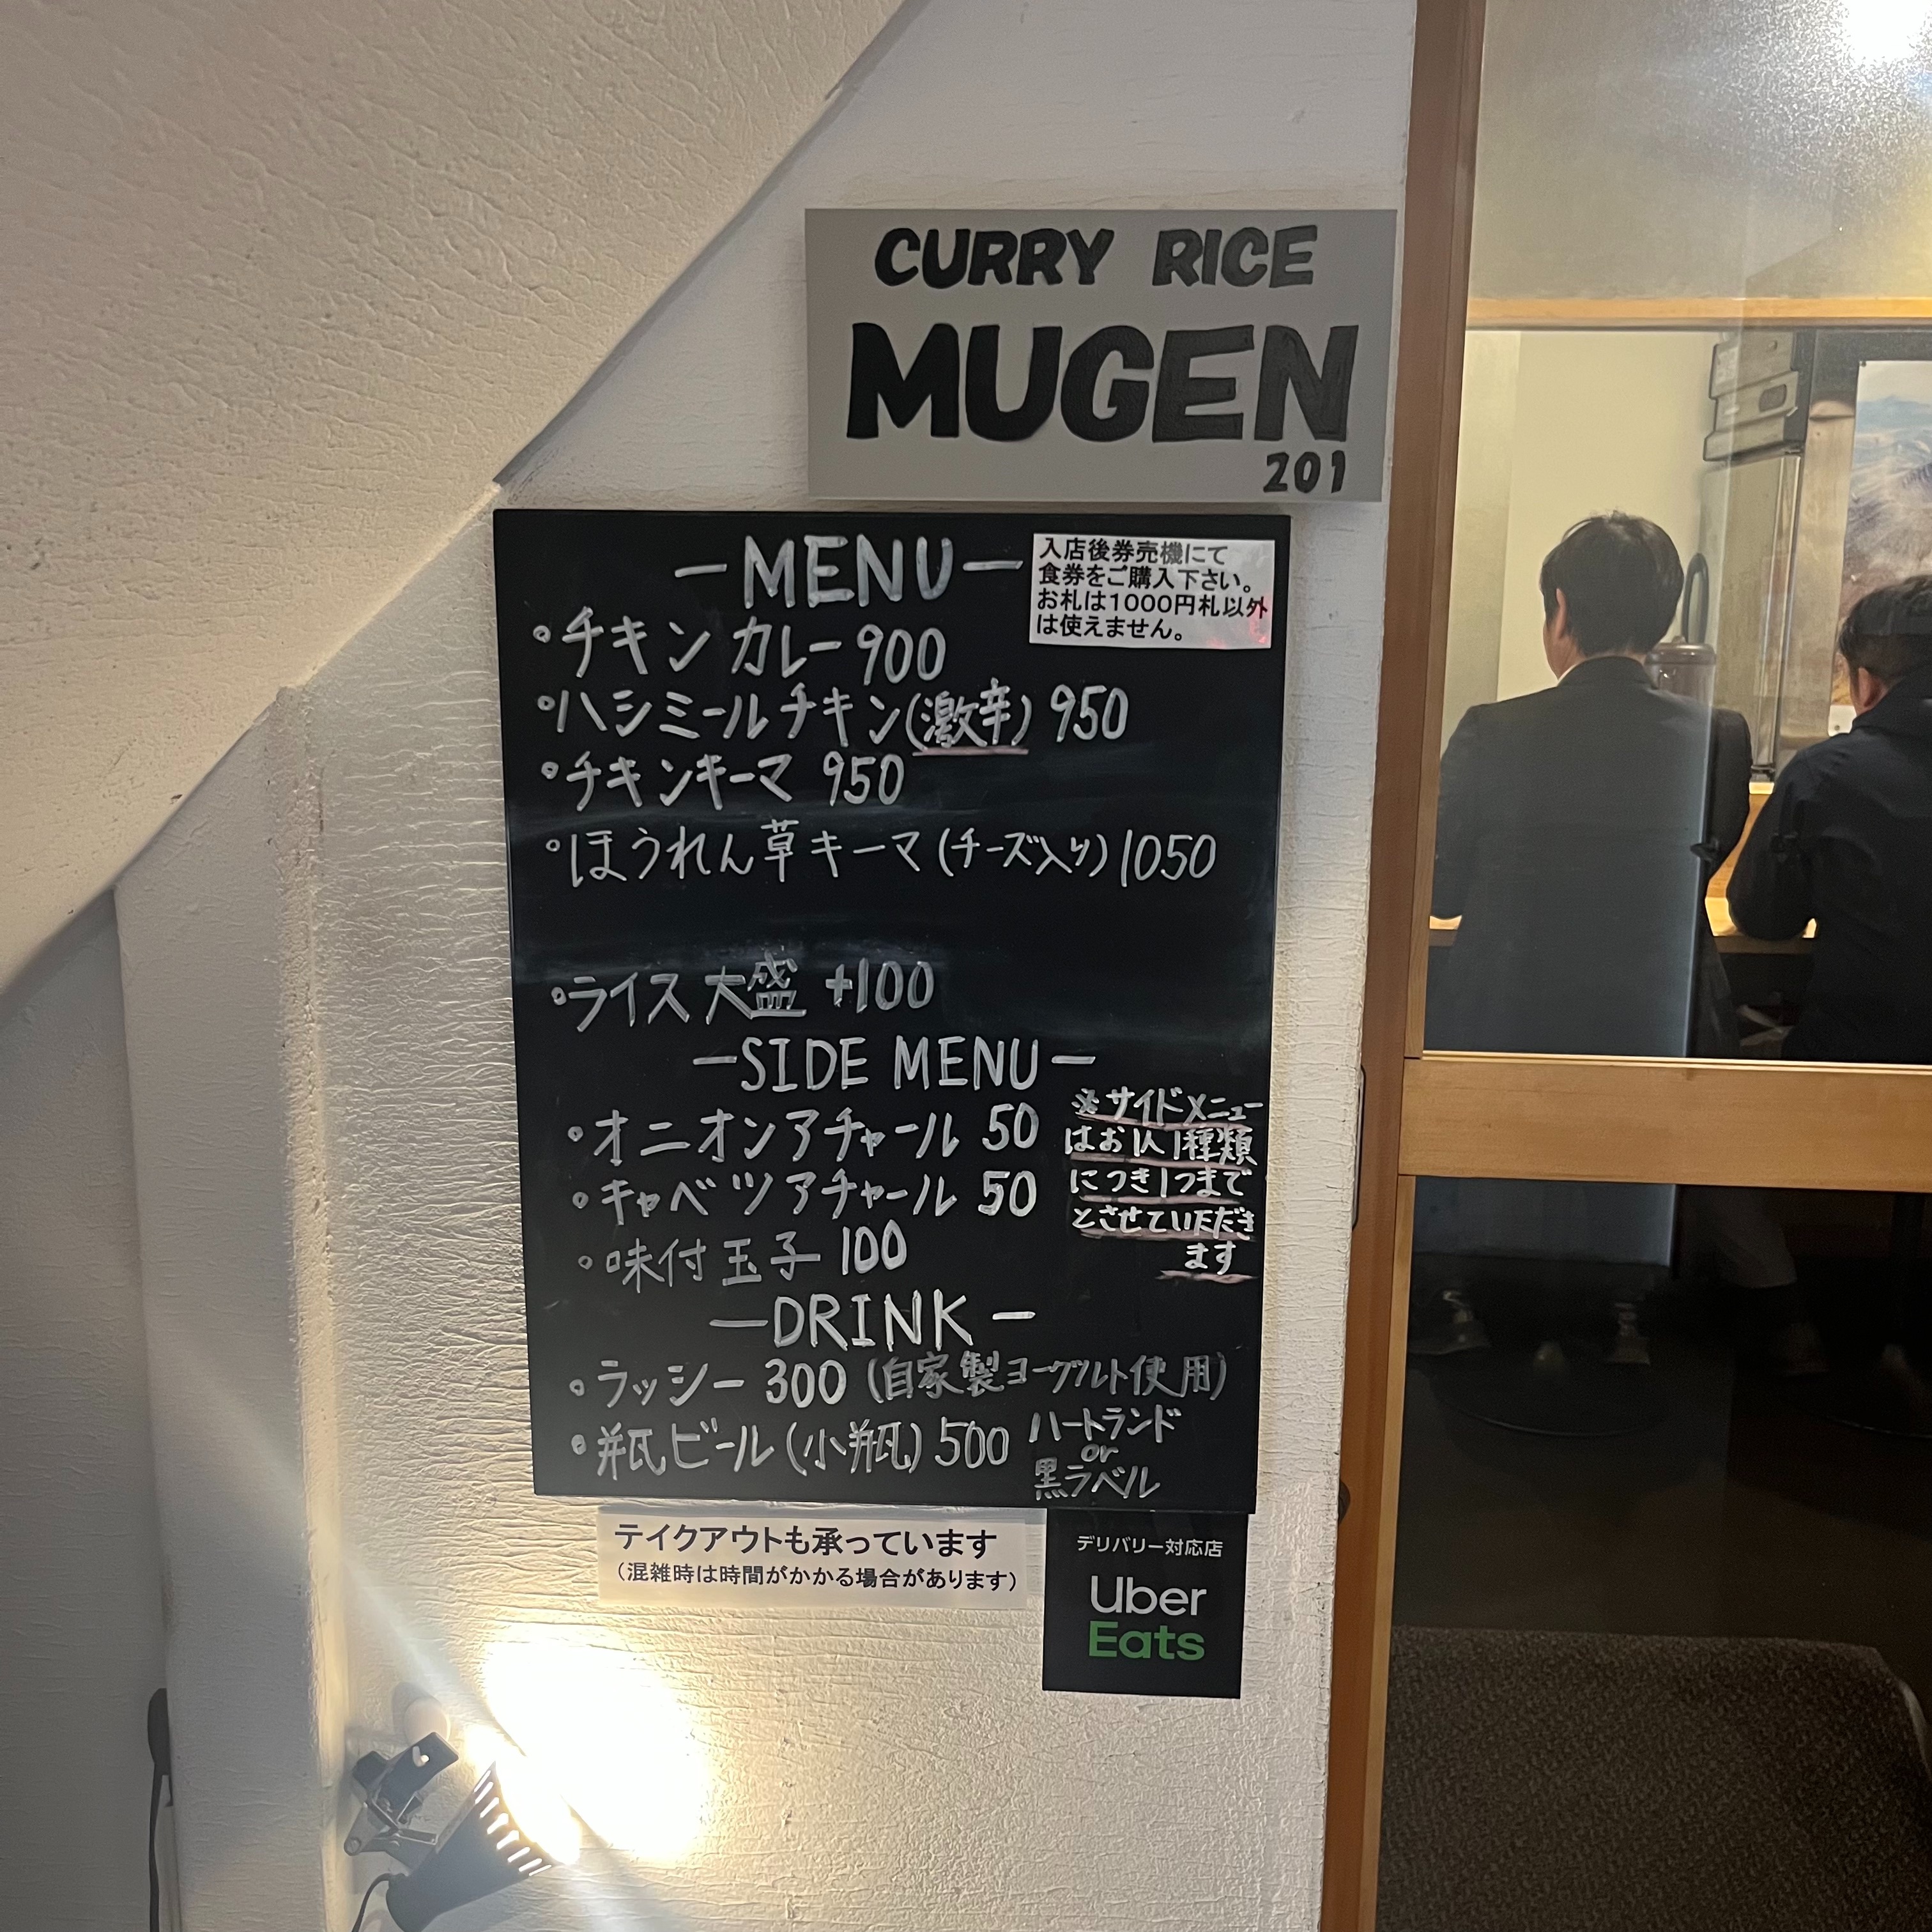 CURRY RICE
MUGEN
201
ーMENUー
入店後券売機にて
食券をご購入下さい。
お札は1000円札以外
は使えません。
・チキンカレー 900
・ハシミールチキン(激辛) 950
・チキンキーマ 950
・ほうれん草キーマ(チーズ入り) 1050
・ライス大盛 +100
ーSIDE MENUー
・オニオンアチャール 50
・キャベツアチャール 50
・味付玉子 100
※サイドメニュー
はお1人1種類
につき1つまで
とさせていただき
ます
ーDRINKー
・ラッシー 300 (自家製ヨーグルト使用)
・瓶ビール(小瓶) 500
ハートランド
or
黒ラベル
テイクアウトも承っています
(混雑時は時間がかかる場合があります)
デリバリー対応店
Uber
Eats